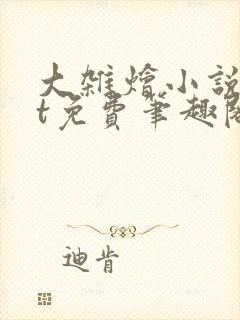 大雜燴小說
t免費筆趣閣
迪肯